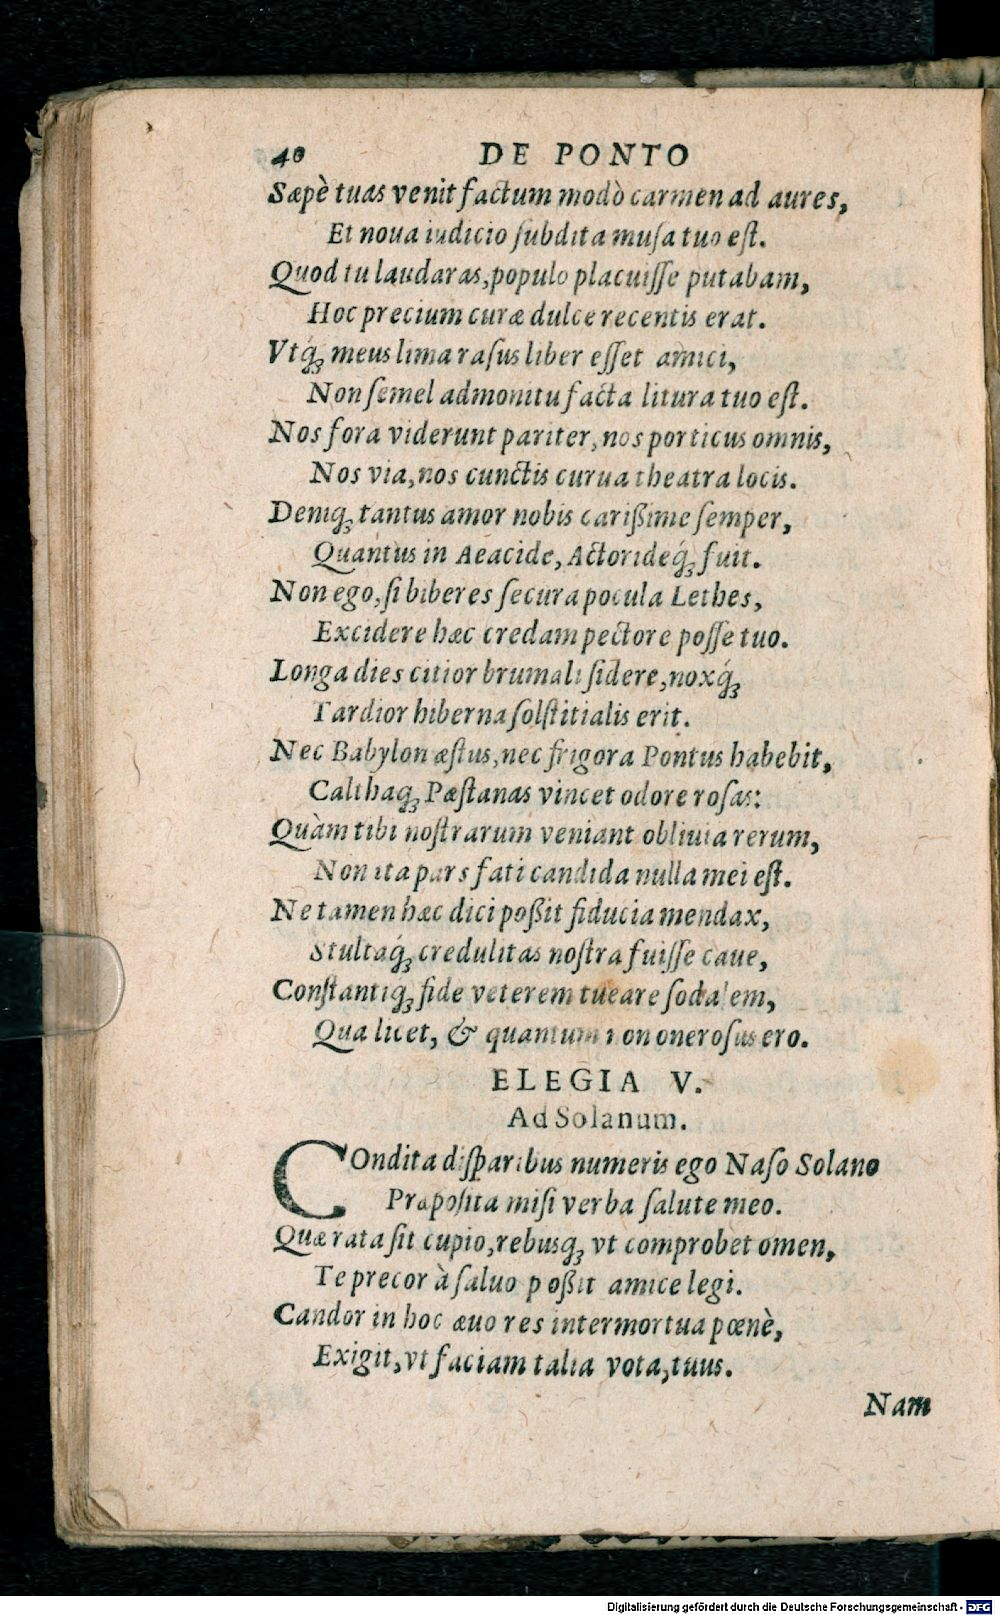 40 DE PONTO
Sæpè tuas venit factum modò carmen ad aures,
Et noua iudicio ſubdita muſa tuo eſt.
Quod tu laudaras, populo placuiſſe putabam,
Hoc precium curæ dulce recentis erat.
Vtq́ꝫ meus lima raſus liber eſſet amici,
Non ſemel admonitu facta litura tuo eſt.
Nos fora viderunt pariter, nos porticus omnis,
Nos via, nos cunctis curua theatra locis.
Deniqꝫ tantus amor nobis carißime ſemper,
Quantus in Aeacide, Actorideq́ꝫ fuit.
Non ego, ſi biberes ſecura pocula Lethes,
Excidere hæc credam pectore poſſe tuo.
Longa dies citior brumali ſidere, noxq́ꝫ
Tardior hiberna ſolſtitialis erit.
Nec Babylon æſtus, nec frigora Pontus habebit,
Calthaqꝫ Pæſtanas vincet odore roſas:
Quàm tibi noſtrarum veniant obliuia rerum,
Non ita pars fati candida nulla mei eſt.
Ne tamen hæc dici poßit fiducia mendax,
Stultaq́ꝫ credulitas noſtra fuiſſe caue,
Conſtantiqꝫ fide veterem tueare ſodalem,
Qua licet, & quantum non oneroſus ero.
ELEGIA V.
Ad Solanum.
COndita diſparibus numeris ego Naſo Solano
Præpoſita miſi verba ſalute meo.
Quæ rata ſit cupio, rebusqꝫ vt comprobet omen,
Te precor à ſaluo poßit amice legi.
Candor in hoc æuo res intermortua pœnè,
Exigit, vt faciam talia vota, tuus.
Nam
Digitalisierung gefördert durch die Deutsche Forschungsgemeinschaft - DFG